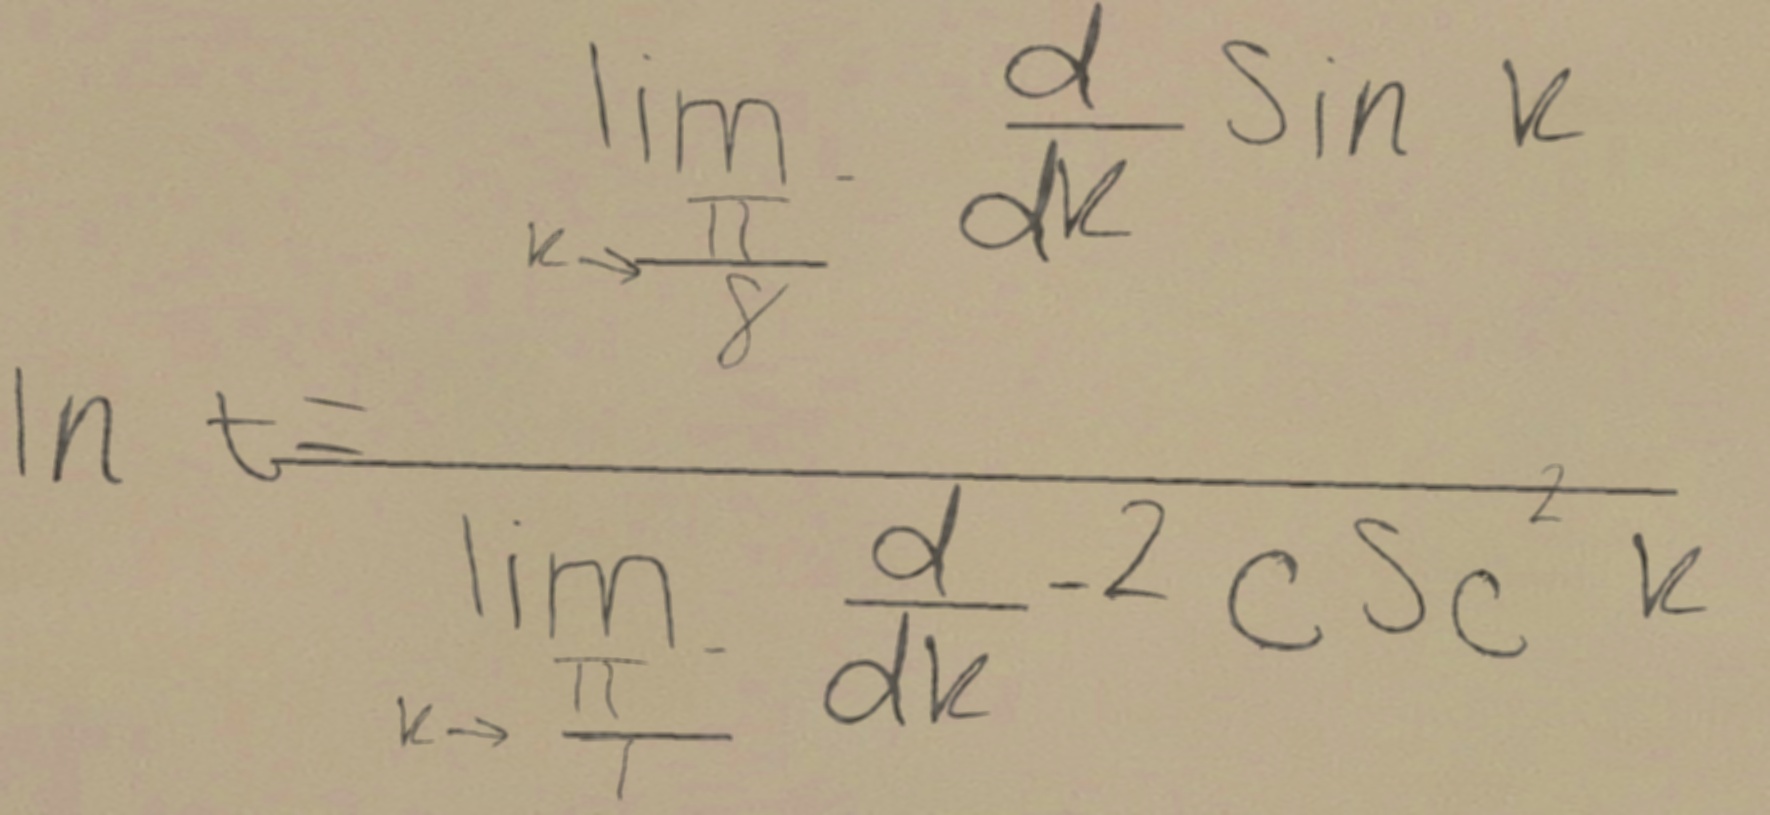 \ln t = \frac{\lim_{k \to \frac{\pi}{8}^-} \frac{d}{dk} \sin k}{\lim_{k \to \frac{\pi}{1}^-} \frac{d}{dk} -2 \csc^2 k}